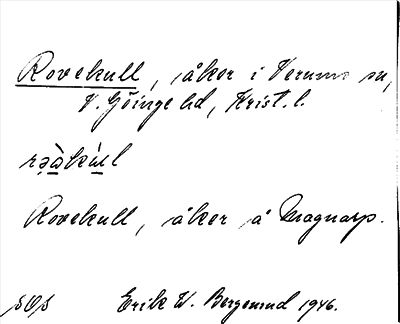 Rovekull, åker i Verums sn,
V. Göinge hd, Krist. l.
Rovekull, åker å Magnarp.
Erik W. Bergenrud 1946.